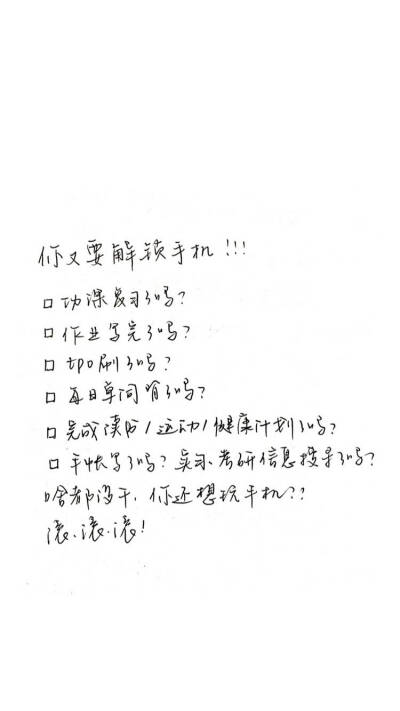 你又要解锁手机!!!
□ 功课复习了吗?
□ 作业写完了吗?
□ tpo刷了吗?
□ 每日单词背了吗?
□ 完成读书/运动/健康计划了吗?
□ 手帐写了吗? 实习、考研信息搜寻了吗?
啥都没干,你还想玩手机??
滚、滚、滚!